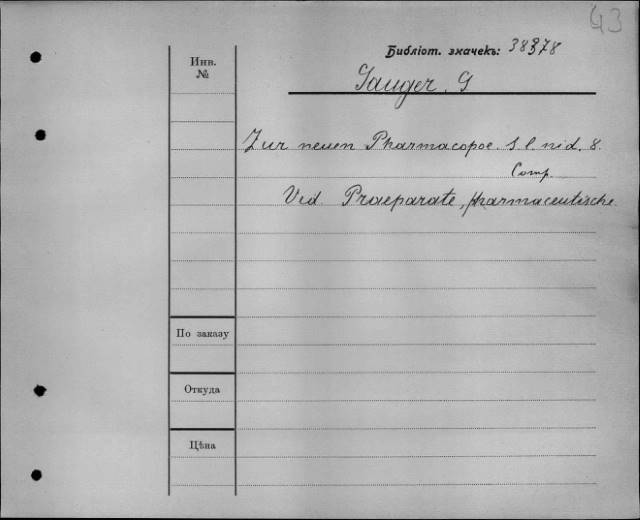 43
Библіот. значекъ: 38378
Инв.
№
Gauger. G
Zur neuen Pharmacopoe. S. l. n. d. 8.
Comp.
Vid. Praeparate, pharmaceutische.
По заказу
Откуда
Цѣна